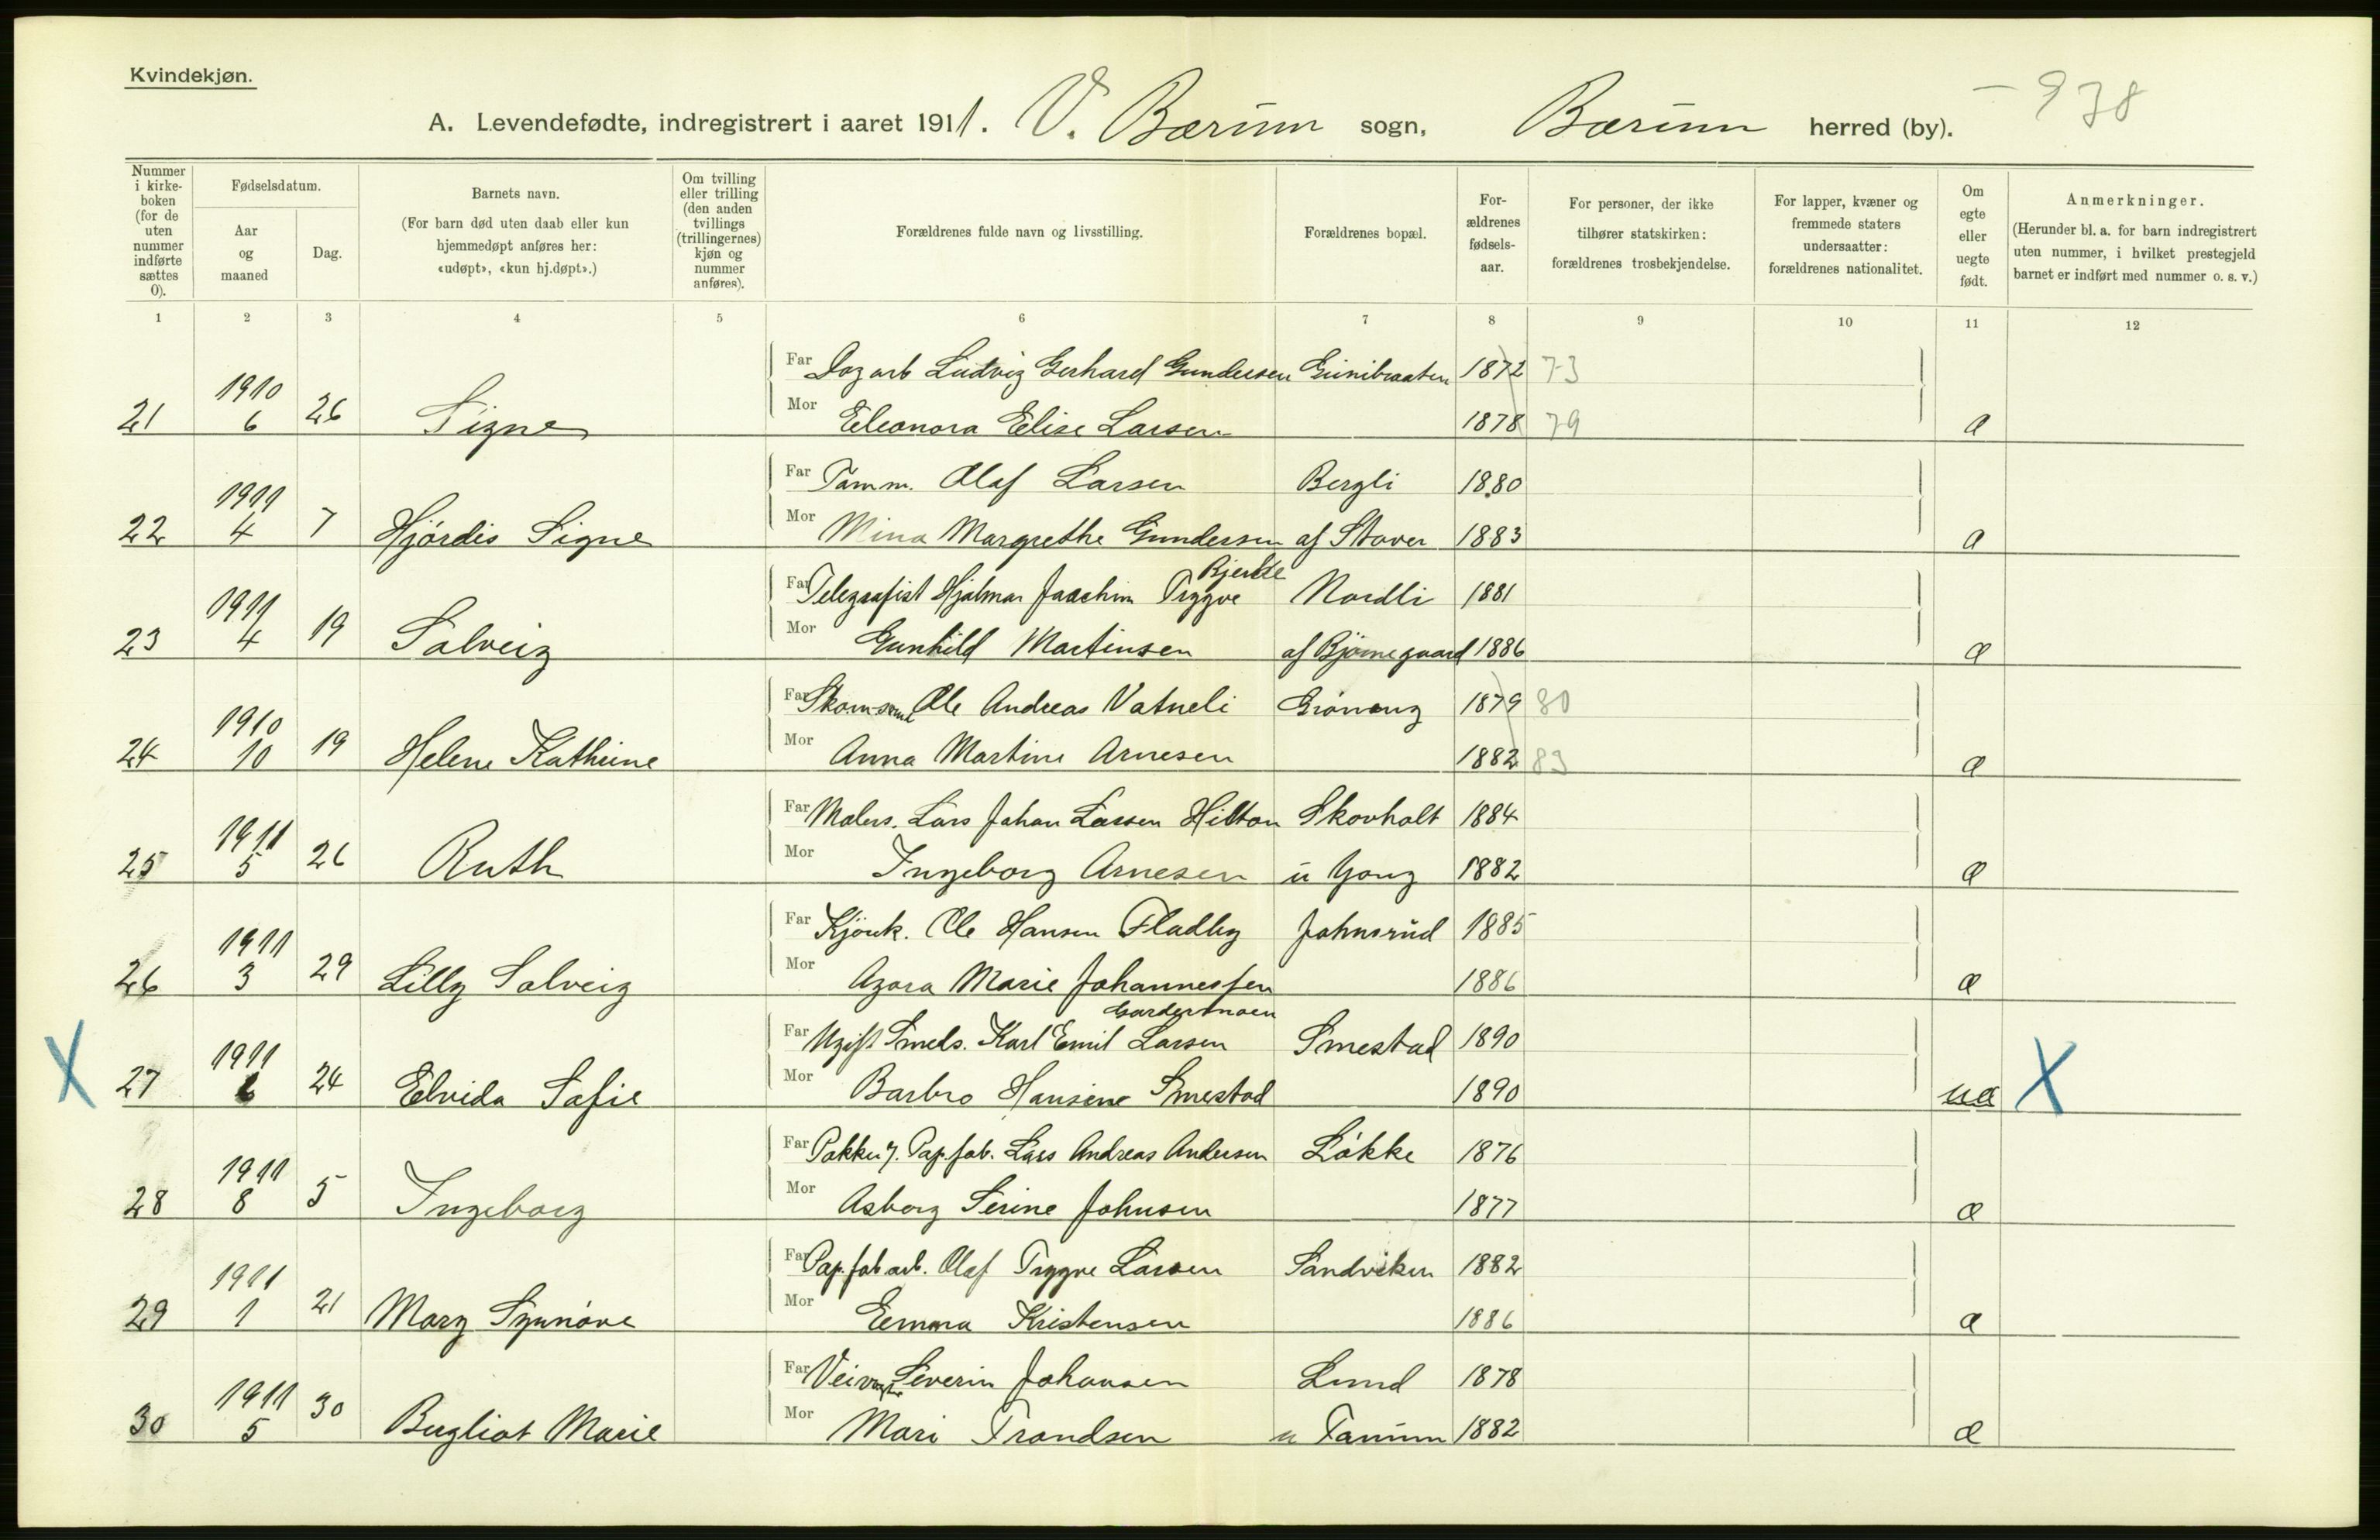 Kvindekjøn.
- 938
A. Levendefødte, indregistrert i aaret 1911. V. Bærum sogn, Bærum herred (by).
Nummer i kirkeboken (for de uten nummer indførte sættes 0).
Fødselsdatum.
Aar og maaned
Dag.
Barnets navn.
(For barn død uten daab eller kun hjemmedøpt anføres her: «udøpt», «kun hj.døpt».)
Om tvilling eller trilling (den anden tvillings (trillingernes) kjøn og nummer anføres).
Forældrenes fulde navn og livsstilling.
Forældrenes bopæl.
Forældrenes fødselsaar.
For personer, der ikke tilhører statskirken: forældrenes trosbekjendelse.
For lapper, kvæner og fremmede staters undersaatter: forældrenes nationalitet.
Om egte eller uegte født.
Anmerkninger.
(Herunder bl. a. for barn indregistrert uten nummer, i hvilket prestegjeld barnet er indført med nummer o. s. v.)
1 2 3 4 5 6 7 8 9 10 11 12
Far Dagarb Ludvig Gerhard Gundersen 1872 73
21 1910 6 26 Signe Mor Eleonora Elise Larsen 1878 79 æ
Far Tømm. Olaf Larsen Bergli 1880
22 1911 4 7 Hjørdis Signe Mor Mina Margrethe Gundersen af Staver 1883 æ
Far Telegrafist Hjalmar Joachim Trygve Bjerke Nordli 1881
23 1911 4 19 Solveig Mor Gunhild Martinsen af Bjørnegaard 1886 æ
Far Ole Andreas Vatneli 1879 80
24 1910 10 19 Helene Kathrine Mor Anna Martine Arnesen 1882 83 æ
Far Malers. Lars Johan Larsen Hilton Skovholt 1884
25 1911 5 26 Ruth Mor Ingeborg Arnesen u 1882 æ
Far Kjøsk. Ole Hansen Fladby Johnsrud 1885
26 1911 3 29 Lilly Solveig Mor Agora Marie Johannessen 1886 æ
Far Ugift Smeds. Karl Emil Larsen Gardermoen Smestad 1890
X 27 1911 6 24 Elvida Sofie Mor Barbro Hansine Smestad 1890 uæ X
Far Pakker v. Pap.fab. Lars Andreas Andersen Løkke 1876
28 1911 8 5 Ingeborg Mor Asborg Serine Johnsen 1877 æ
Far Pap.fabarb. Olaf Trygve Larsen Sandviken 1882
29 1911 1 21 Mary Synnøve Mor Emma Kristensen 1886 æ
Far Severin Johansen Lund 1878
30 1911 5 30 Bergliot Marie Mor Mari Trondsen u Tanum 1882 æ